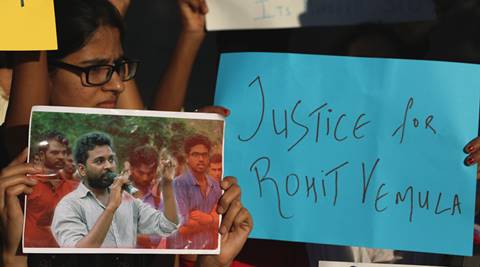 Its
JUSTICE for
ROHIT VEMULA